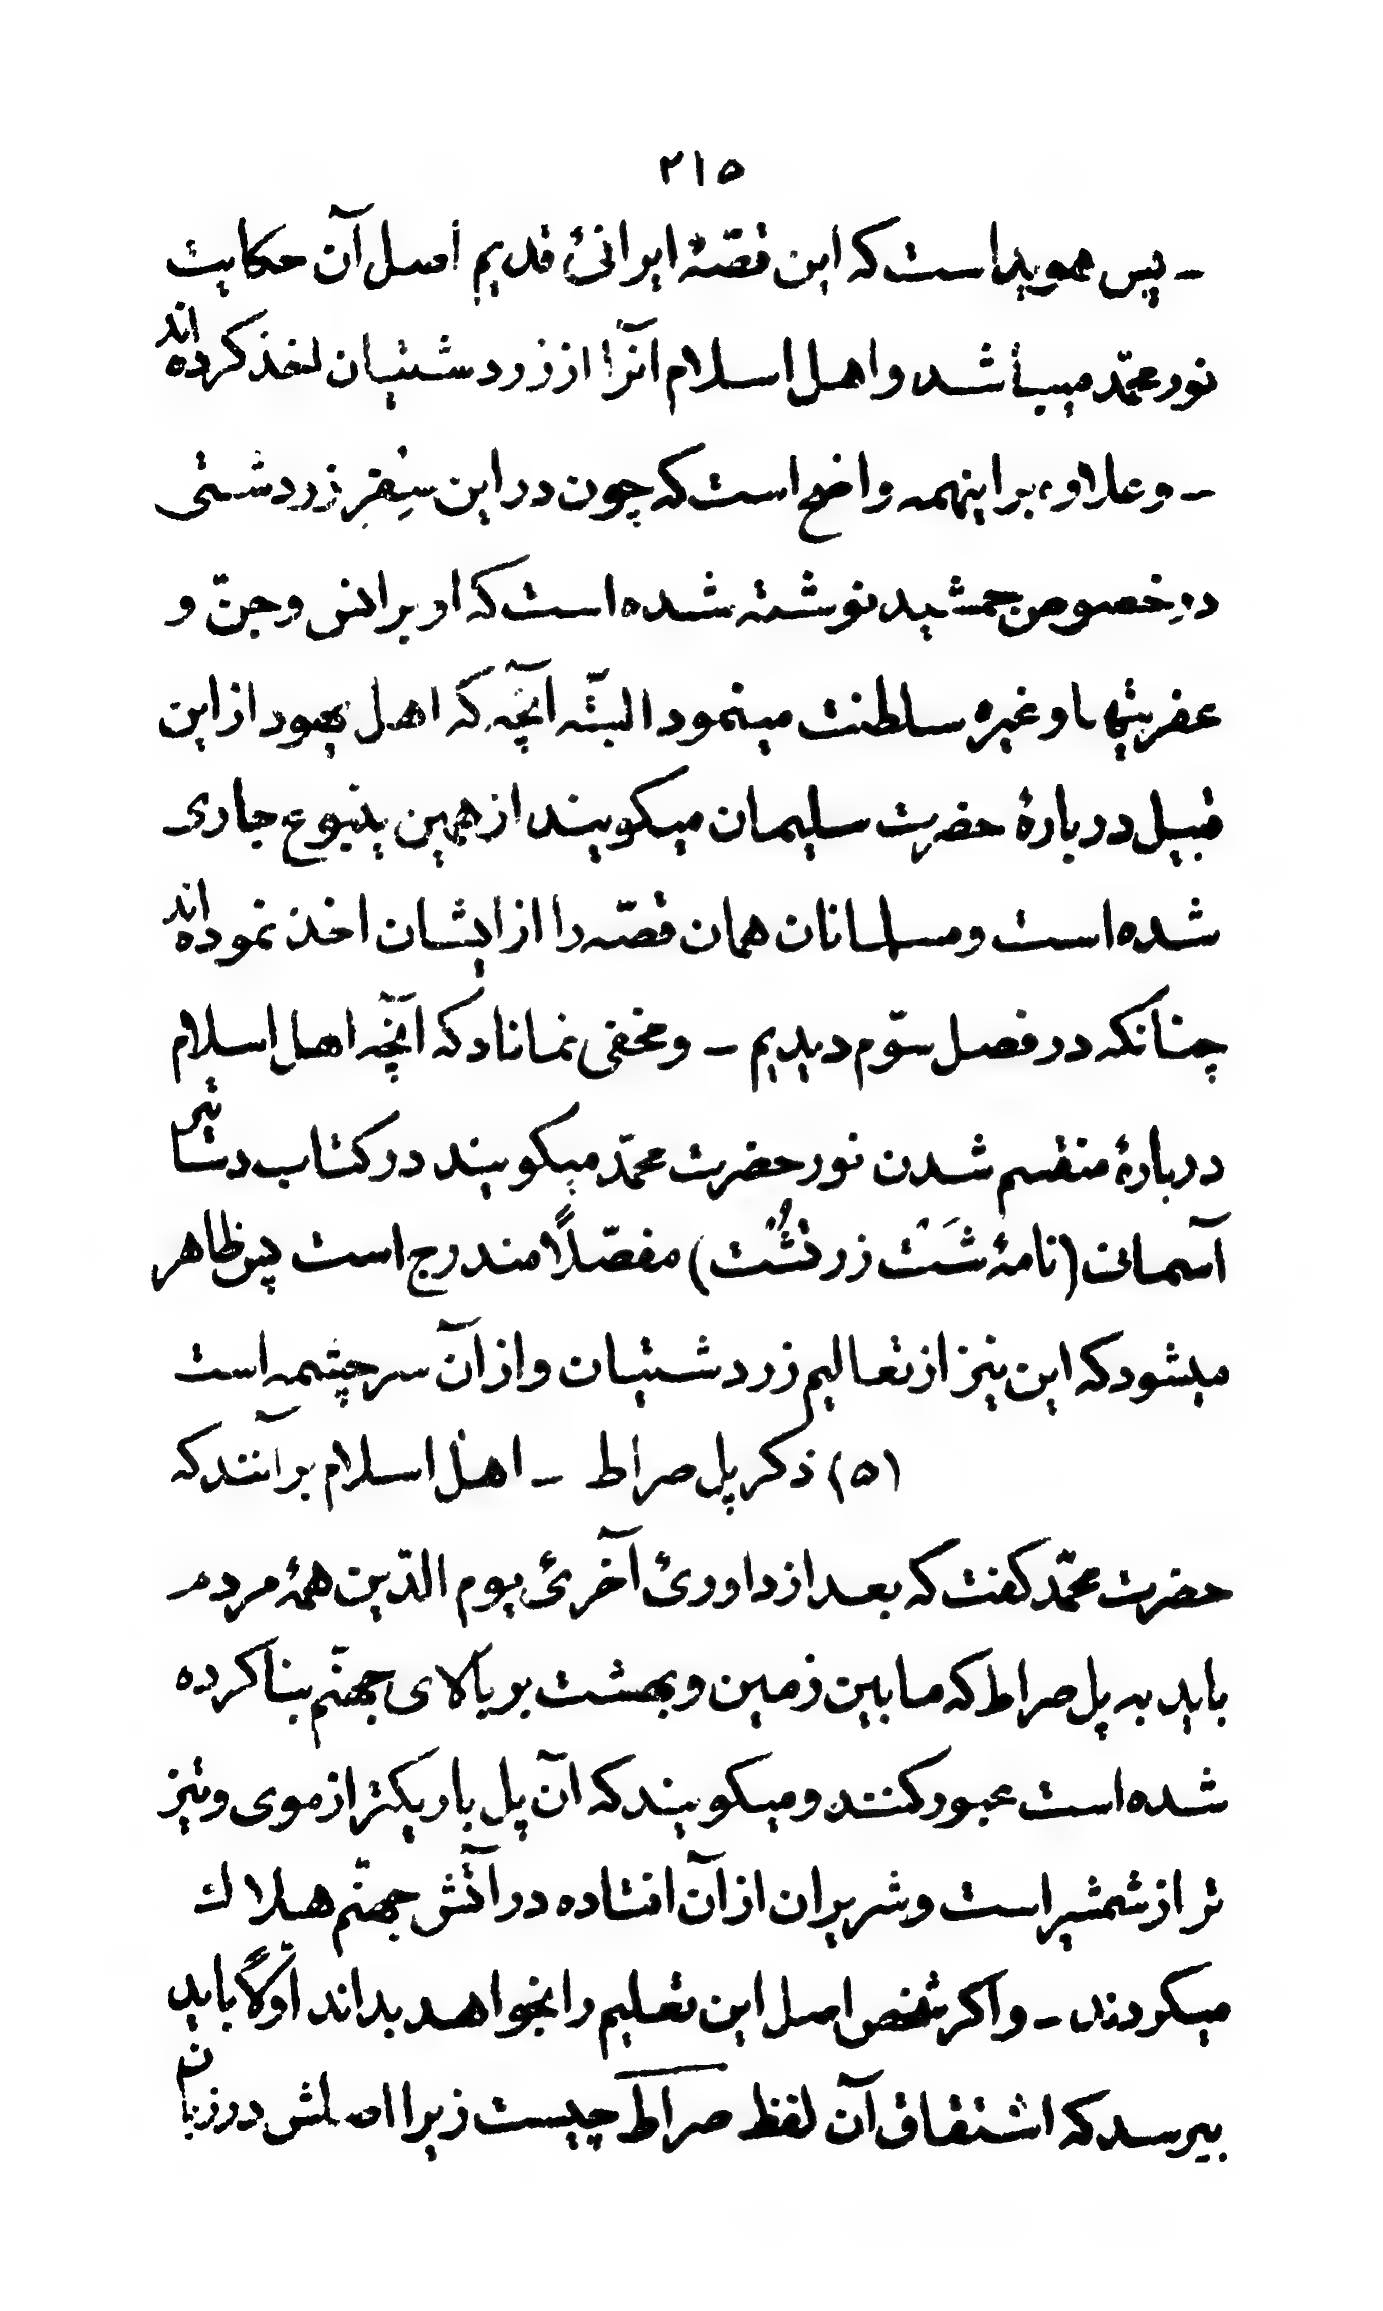 ۲۱۵
ـ پس هویداست که این قصّهٔ ایرانئ قدیم اصل آن حکایت
نور محمّد میباشد و اهل اسلام آنرا از زردشتیان اخذ کرده‌اند
ـ و علاوه بر اینهمه واضح است که چون در این سِفرِ زردشتی
در خصوص جمشید نوشته شده است که او بر انس و جنّ و
عفریتها و غیره سلطنت مینمود البتّه آنچه که اهل یهود از این
قبیل دربارهٔ حضرت سلیمان میکویند از همین ینبوع جاری
شده است و مسلمانان همان قصّه را از ایشان اخذ نموده‌اند
چنانکه در فصل سوّم دیدیم ـ و مخفی نماناد که آنچه اهل اسلام
دربارهٔ منقسم شدن نور حضرت محمّد میکویند در کتاب دساتیر
آسمانی (نامهٔ شَت زرتُشت) مفصّلاً مندرج است پس ظاهر
میشود که این نیز از تعالیم زردشتیان و از آن سرچشمه است
(۵) ذکر پل صراط ـ اهل اسلام بر آنند که
حضرت محمّد کفت که بعد از داورئ آخرئ یوم الدّین همهٔ مردم
باید به پل صراط که مابین زمین و بهشت بر بالای جهنّم بنا کرده
شده است عبور کنند و میکویند که آن پل باریکتر از موی و تیز
تر از شمشیر است و شریران از آن افتاده در آتش جهنّم هلاک
میکردند ـ و اکر شخص اصل این تعلیم را بخواهد بداند اوّلاً باید
بپرسد که اشتقاق آن لفظ صراط چیست زیرا اصلش در زبان